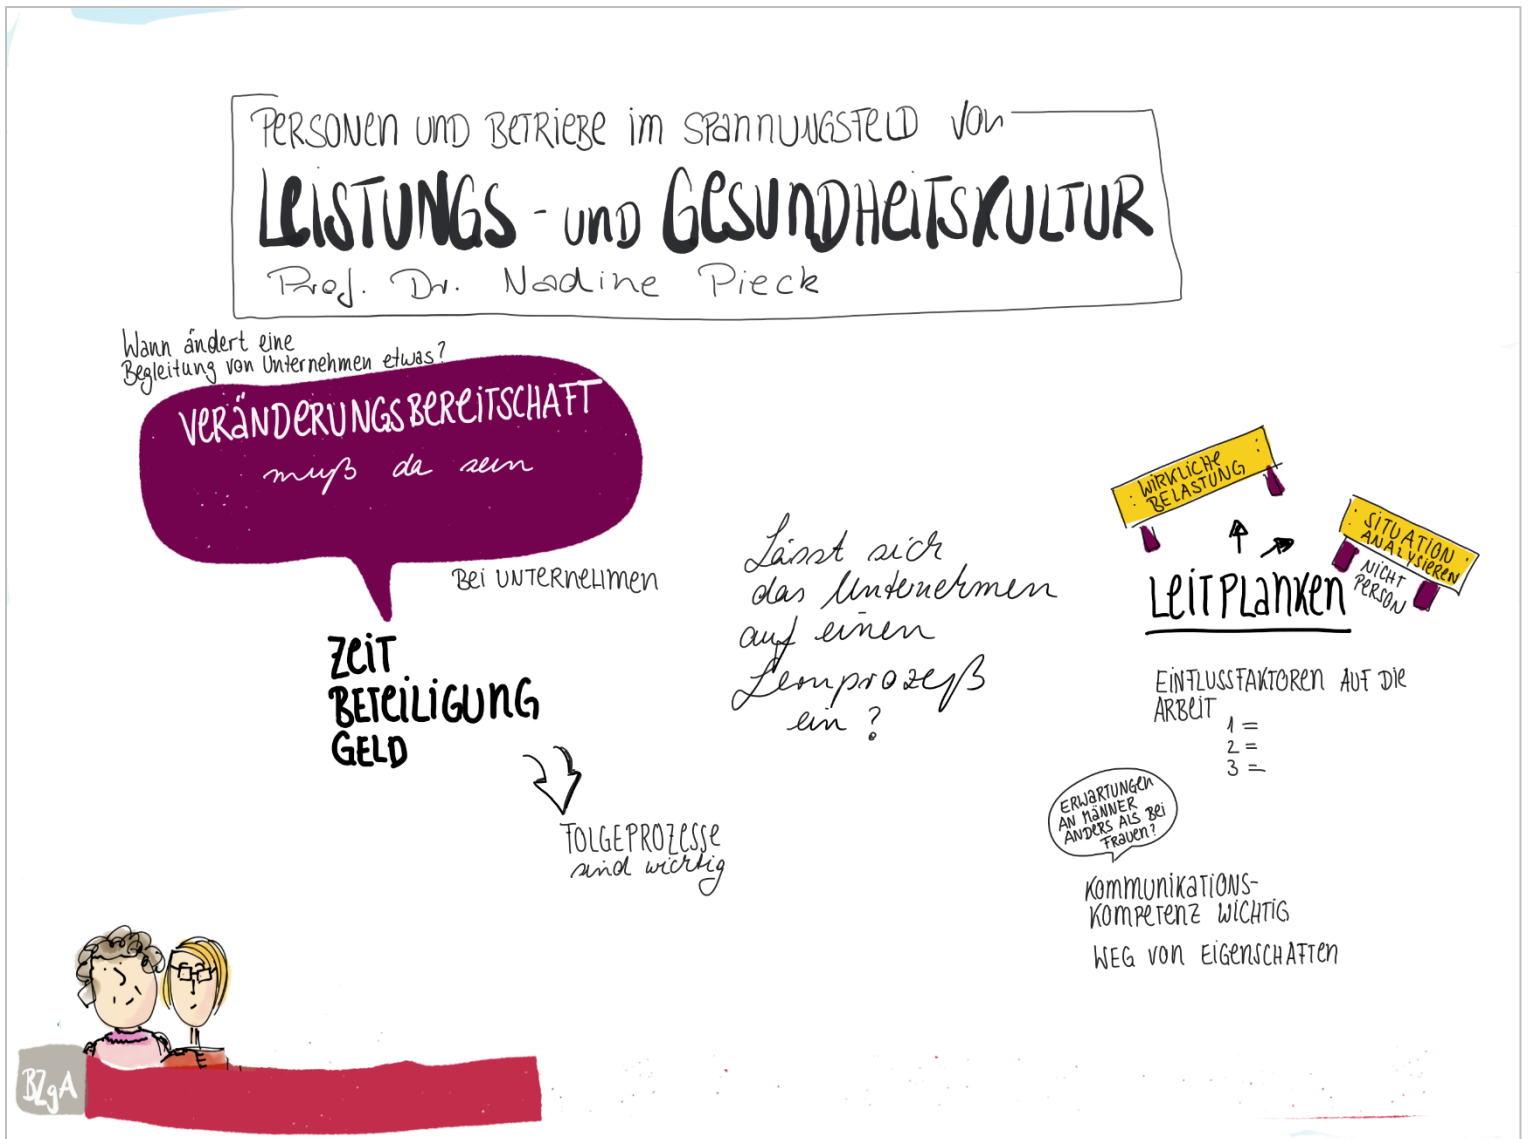 PERSONEN UND BETRIEBE IM SPANNUNGSFELD VON
LEISTUNGS- UND GESUNDHEITSKULTUR
Prof. Dr. Nadine Pieck
Wann ändert eine
Begleitung von Unternehmen etwas?
VERÄNDERUNGSBEREITSCHAFT
muß da sein
BEI UNTERNEHMEN
ZEIT
BETEILIGUNG
GELD
FOLGEPROZESSE
sind wichtig
Lässt sich
das Unternehmen
auf einen
Lernprozeß
ein?
WIRKLICHE
BELASTUNG
SITUATION
ANALYSIEREN
NICHT
PERSON
LEITPLANKEN
EINFLUSSFAKTOREN AUF DIE
ARBEIT
1 =
2 =
3 =
ERWARTUNGEN
AN MÄNNER
ANDERS ALS BEI
FRAUEN?
KOMMUNIKATIONS-
KOMPETENZ WICHTIG
WEG VON EIGENSCHAFTEN
BZgA